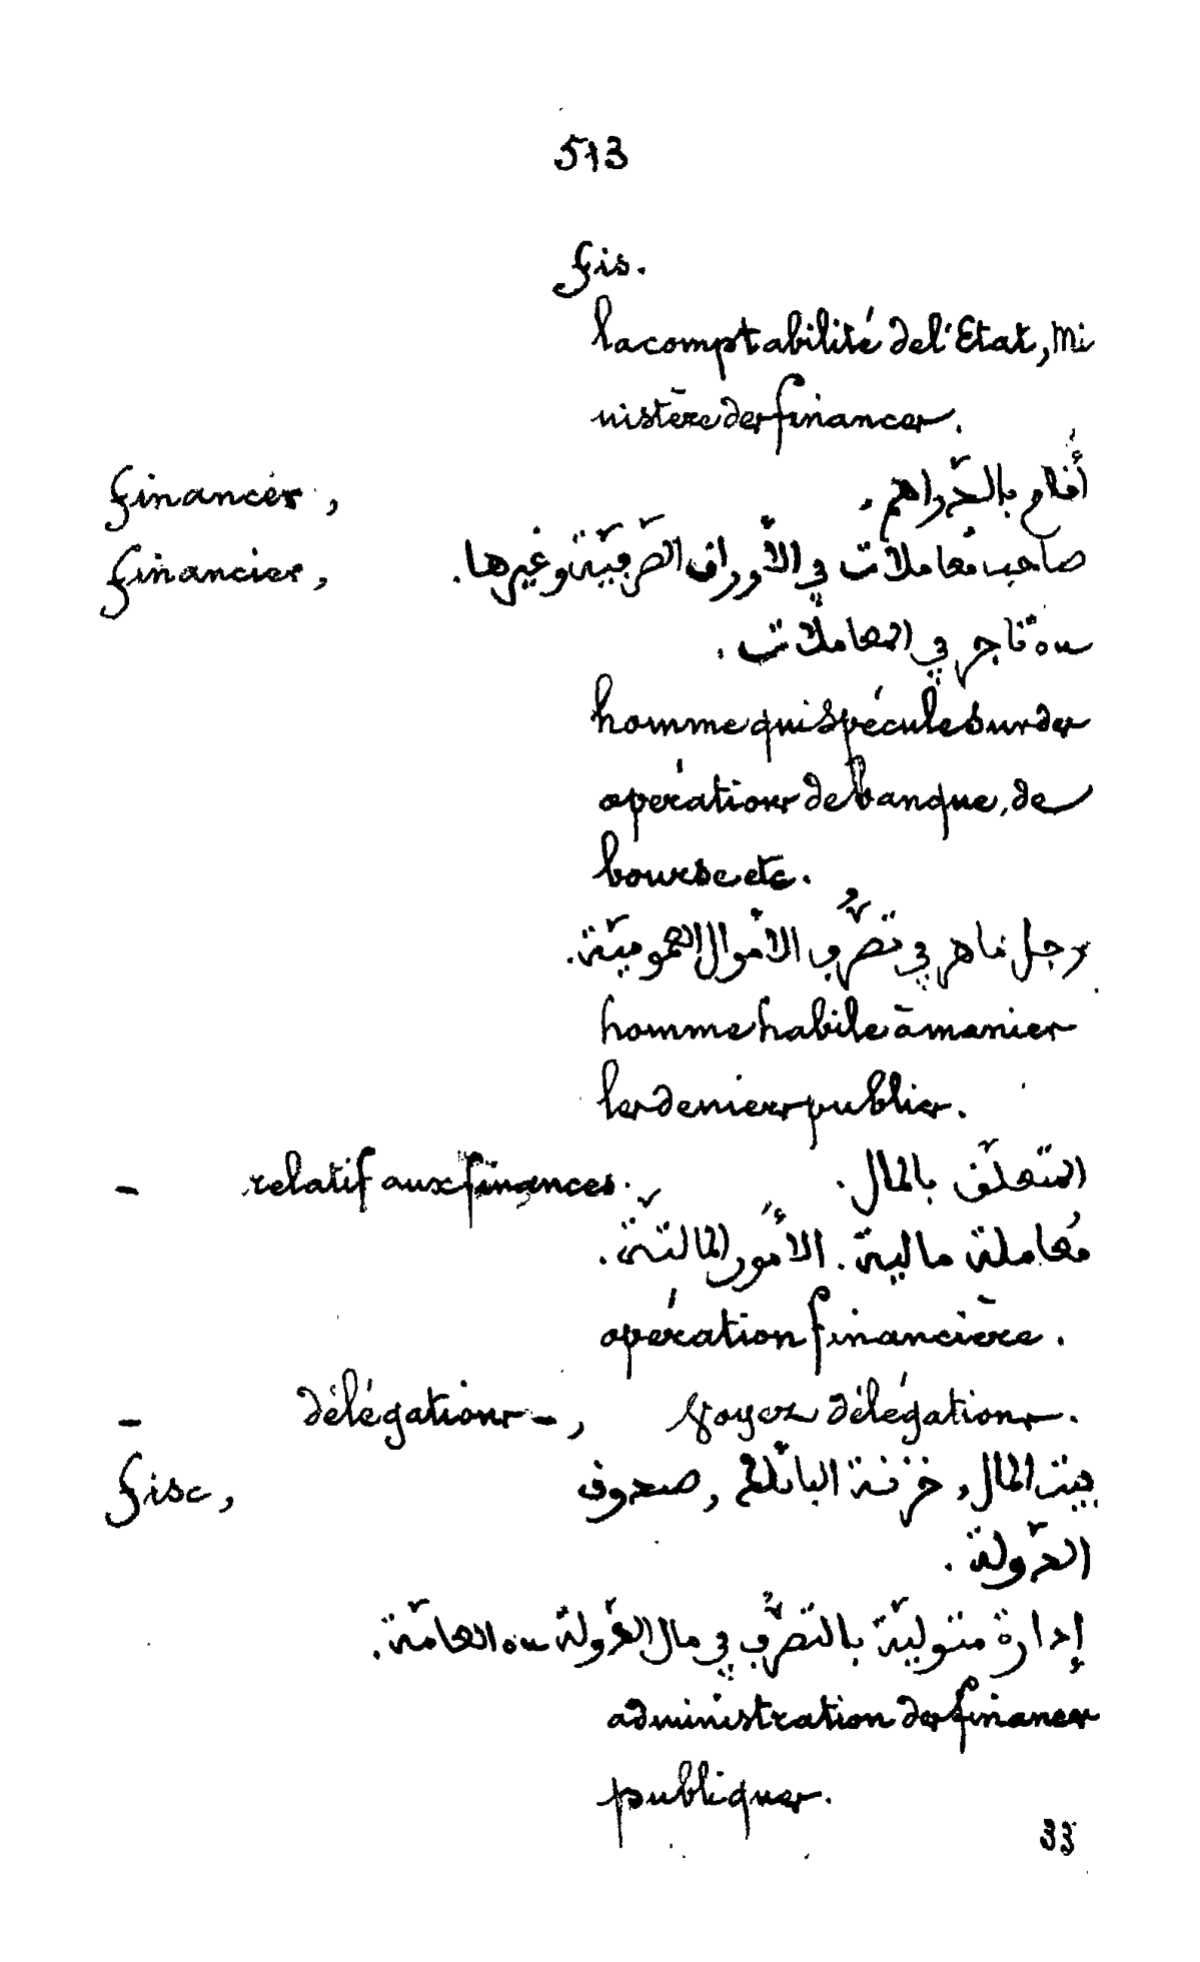 513
fis.
la comptabilité de l'Etat, Mi
nistère des finances.
financer, أقام بالدّراهم.
financier, صاحب مُعاملات في الأوراق الصّرفيّة وغيرها.
ou تاجر في المعاملات.
homme qui spécule sur des
opérations de banque, de
bourse etc.
رجل ماهر في تصرُّف الأموال العموميّة.
homme habile à manier
les deniers publics.
- relatif aux finances. المتعلّق بالمال.
مُعاملة مالية. الأمُور الماليّة.
opération financière.
- délégations -, Voyez délégations.
fisc, بيت المال, خزنة البايلك, صندوق
الدّولة.
إدارة متوليّة بالتّصرُّف في مال الدّولة ou العامّة.
administration des finances
publiques.
33